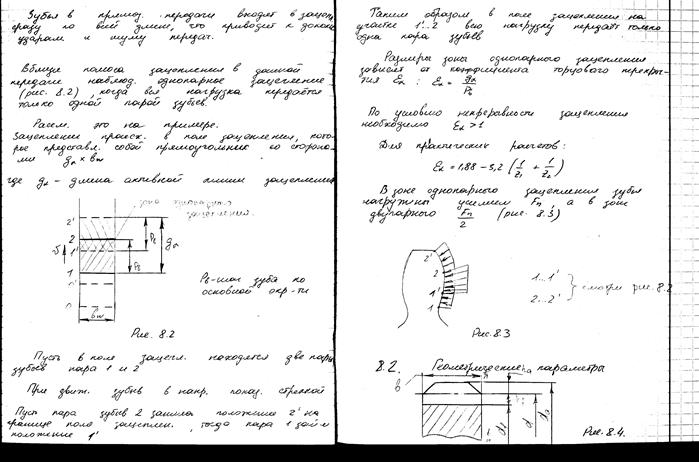 Зубья в прямоз. передачи входят в зацеп.
сразу по всей длине, что приводит к
ударам и шуму передач.
Вблизи полюса зацепления в данной
передаче наблюд. однопарное зацепление
(рис. 8.2), когда вся нагрузка передаётся
только одной парой зубьев.
Рассм. это на примере.
Зацепление происх. в поле зацепления, кото-
рое представл. собой прямоугольник со сторона-
ми gα × bw
где gα - длина активной линии зацепления
зона однопарного
зацепления.
2'
2
1'
1
Pb
Pb
gα
bw
Pb - шаг зуба по
основной окр-ти
Рис. 8.2
Пусть в поле зацепл. находятся две пары
зубьев пара 1 и 2
При движ. зубьев в напр. показ. стрелкой
Пусть пара зубьев 2 займёт положение 2' на
границе поля зацеплен., тогда пара 1 займ
положение 1'
Таким образом в поле зацепления на
участке 1'..2 всю нагрузку передаёт только
одна пара зубьев
Размеры зоны однопарного зацепления
зависят от коэффициента торцового перекры-
тия Eα : Eα = gα/Pb
По условию непрерывности зацепления
необходимо Eα > 1
Для практических расчётов:
Eα = 1,88 - 3,2 (1/z1 + 1/z2)
В зоне однопарного зацепления зубья
нагружены усилием Fn, а в зоне
двупарного Fn/2 (рис. 8.3)
2'
2
1'
1
1...1'
2...2' } смотри рис. 8.2
Рис. 8.3
8.2. Геометрические параметры
b
ha
d
da
Рис. 8.4.